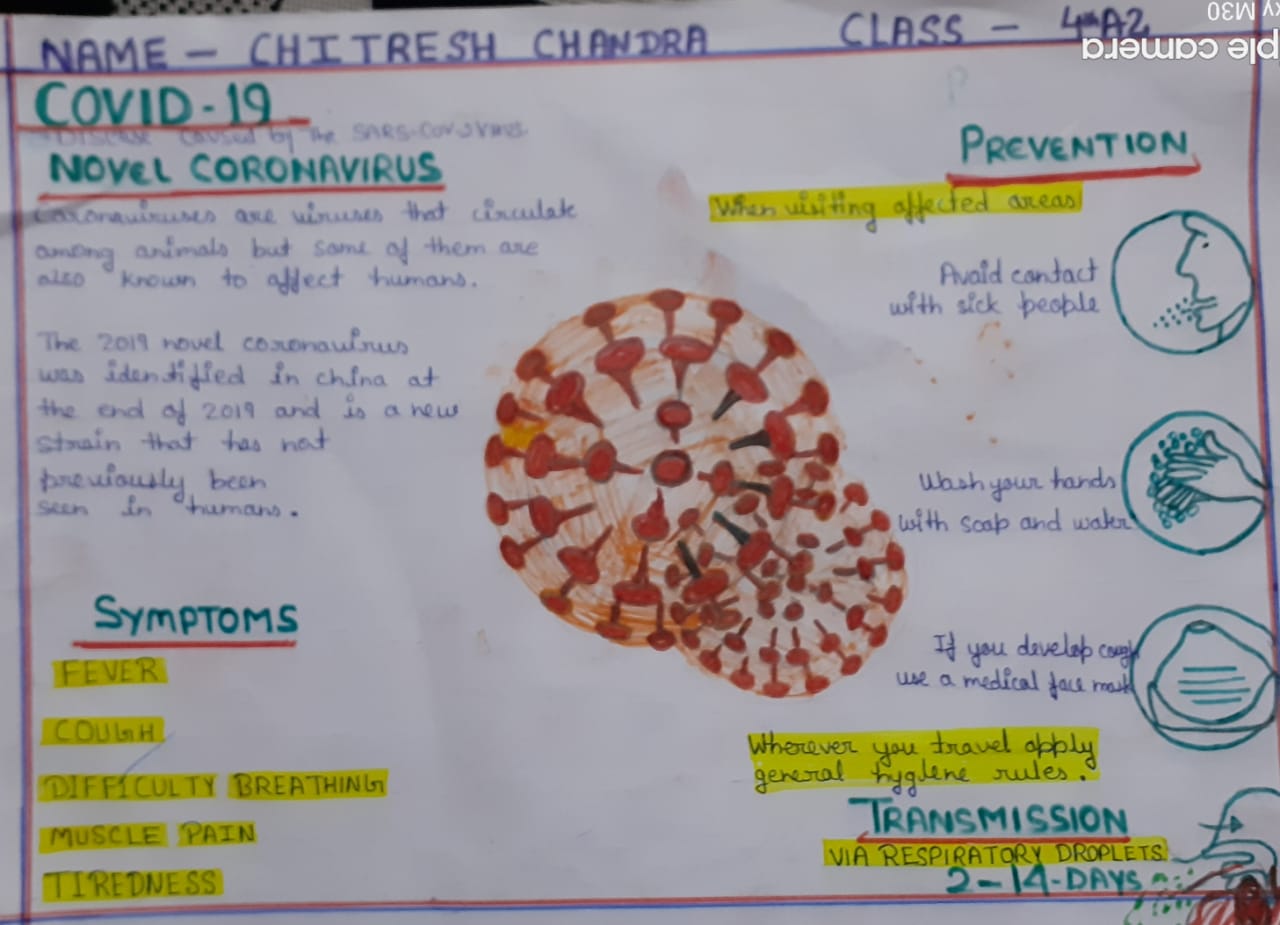 NAME - CHITRESH CHANDRA
CLASS - 4th A2
COVID-19
DISEASE caused by the SARS-COV-2 VIRUS.
NOVEL CORONAVIRUS
Coronaviruses are viruses that circulate
among animals but some of them are
also known to affect humans.
The 2019 novel coronavirus
was identified in china at
the end of 2019 and is a new
strain that has not
previously been
seen in humans.
SYMPTOMS
FEVER
COUGH
DIFFICULTY BREATHING
MUSCLE PAIN
TIREDNESS
PREVENTION
When visiting affected areas
Avoid contact
with sick people
Wash your hands
with soap and water
If you develop cough
use a medical face mask
Wherever you travel apply
general hygiene rules.
TRANSMISSION
VIA RESPIRATORY DROPLETS
2-14-DAYS
ple camera
xy M30